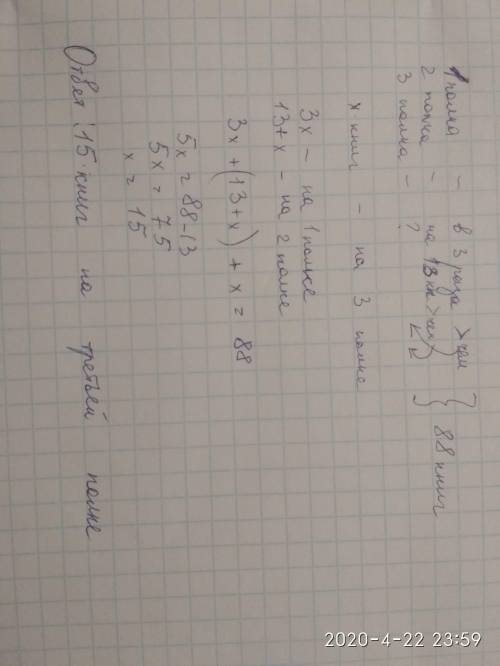 1 полка - в 3 раза > чем
2 полка - на 13 кн > чем } 88 книг
3 полка - ?
x книг - на 3 полке
3x - на 1 полке
13+x - на 2 полке
3x + (13+x) + x = 88
5x = 88-13
5x = 75
x = 15
Ответ: 15 книг на третьей полке
2020-4-22 23:59